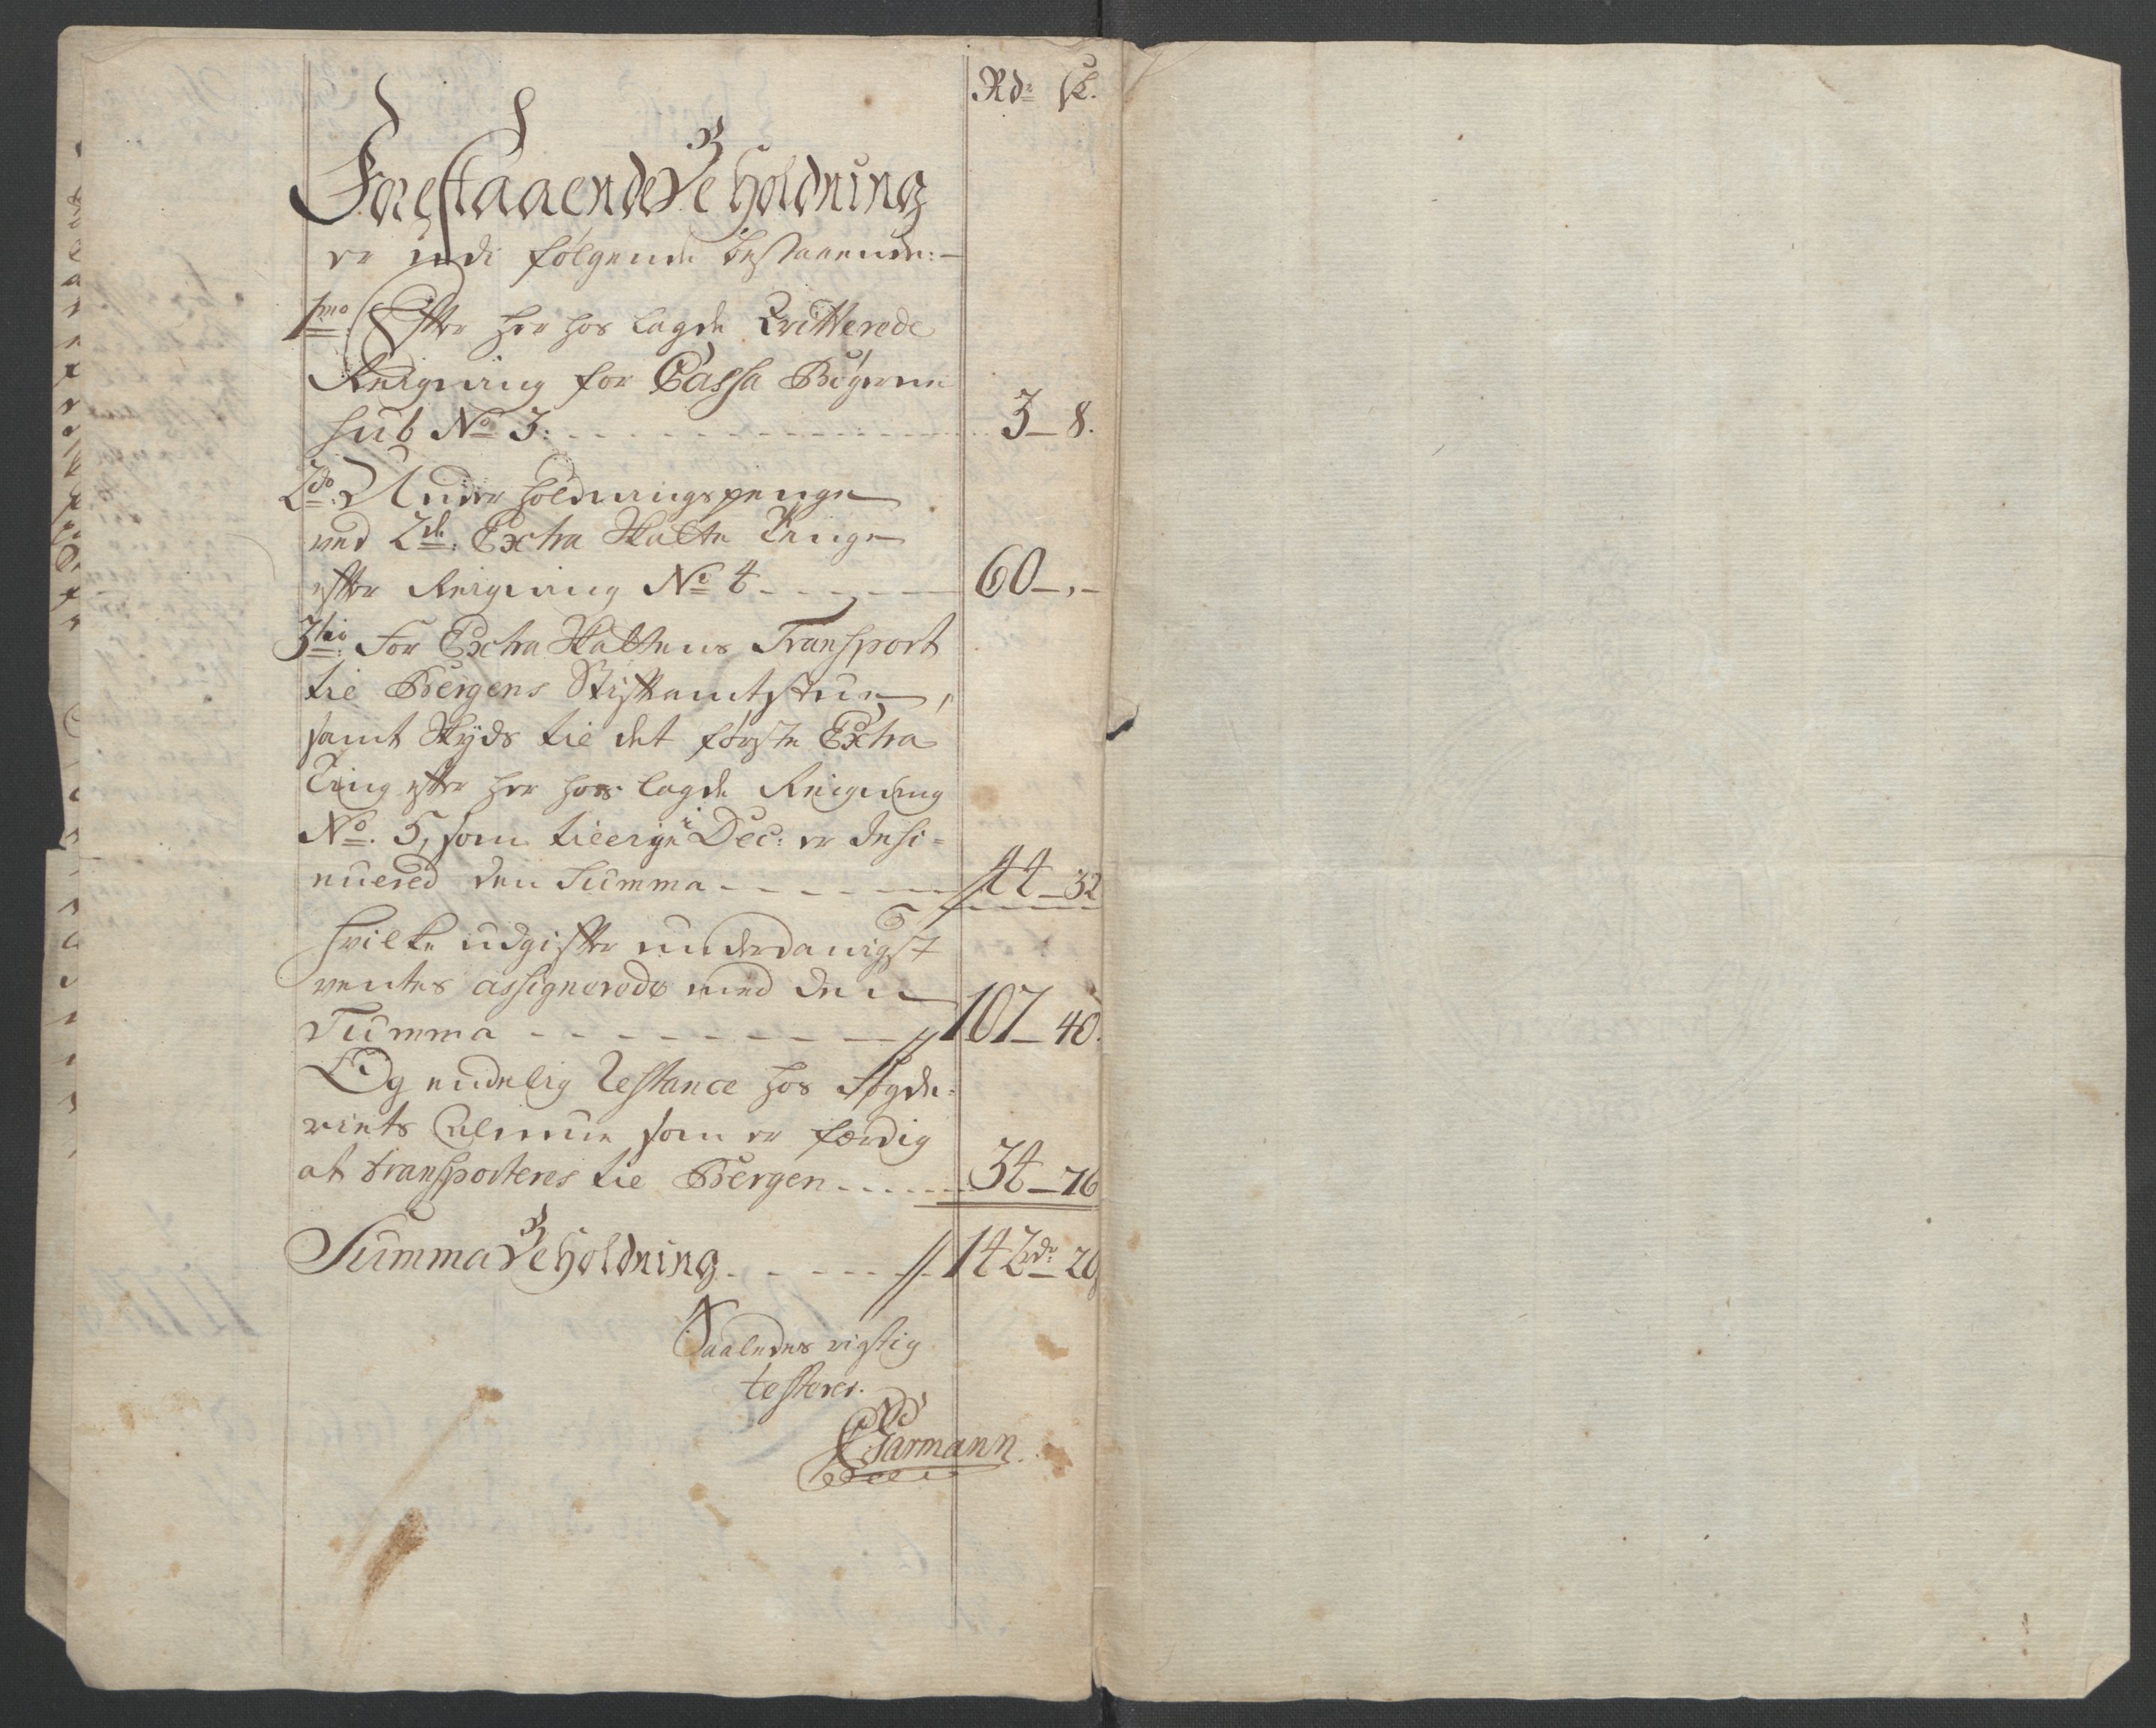 Rdr sk.
Forestaaende Beholdning
er udi følgende bestaaende:
1mo Efter her hos lagde Qvitterede
Reigning for Cassa Bøgerne
sub No 3: 3 - 8.
2do Underholdningspenge
ved 2de Extra Skatte Tinge
efter Reigning No 4 60 - , -
3tio For Extra Skattens Transport
til Bergens Stiftamtstue,
samt Skyds til det første Extra
Ting efter her hos lagde Reigning
No. 5, som tillige i Dec: er Insi-
nuered den Summa 44 - 32
Hvilke udgifter underdanigst
ventes assignerede med den
Summa 107 - 40.
Og endelig Restance hos Fogde-
riets Almue som er færdig
at transporteres til Bergen 34 - 76
Summa Beholdning 142rdr - 20
Saaledes rigtig
testeres.
Garmann